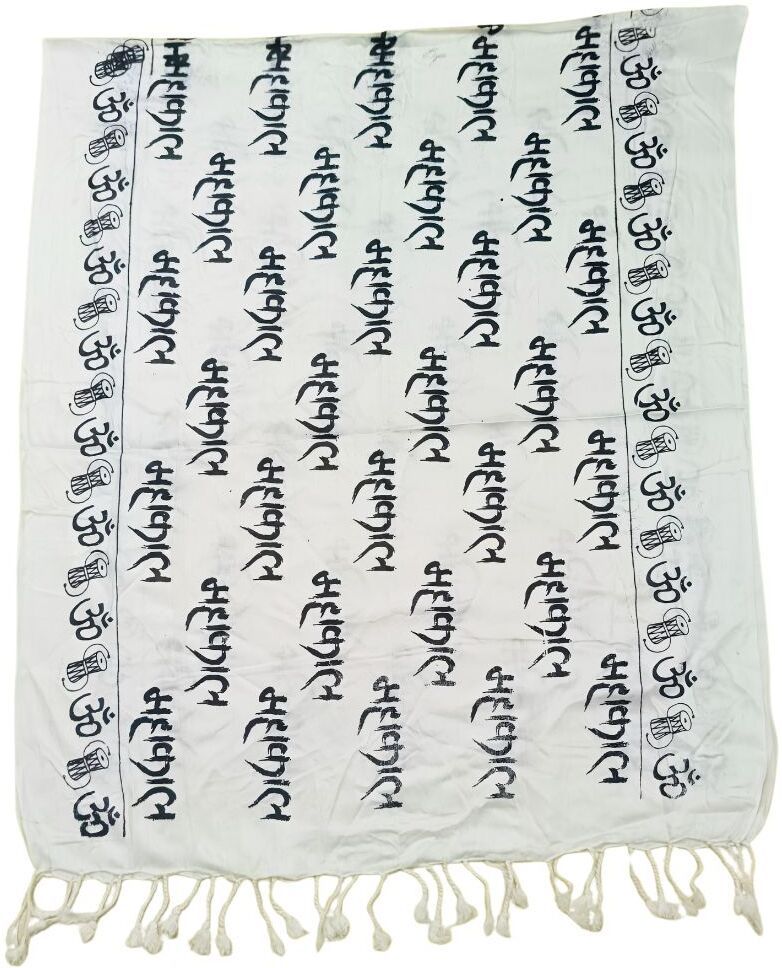 ॐ ॐ ॐ ॐ ॐ ॐ ॐ ॐ ॐ
महाकाल महाकाल महाकाल महाकाल
महाकाल महाकाल महाकाल
महाकाल महाकाल महाकाल महाकाल
महाकाल महाकाल महाकाल
महाकाल महाकाल महाकाल महाकाल
महाकाल महाकाल महाकाल
महाकाल महाकाल महाकाल महाकाल
महाकाल महाकाल महाकाल
महाकाल महाकाल महाकाल महाकाल
ॐ ॐ ॐ ॐ ॐ ॐ ॐ ॐ ॐ